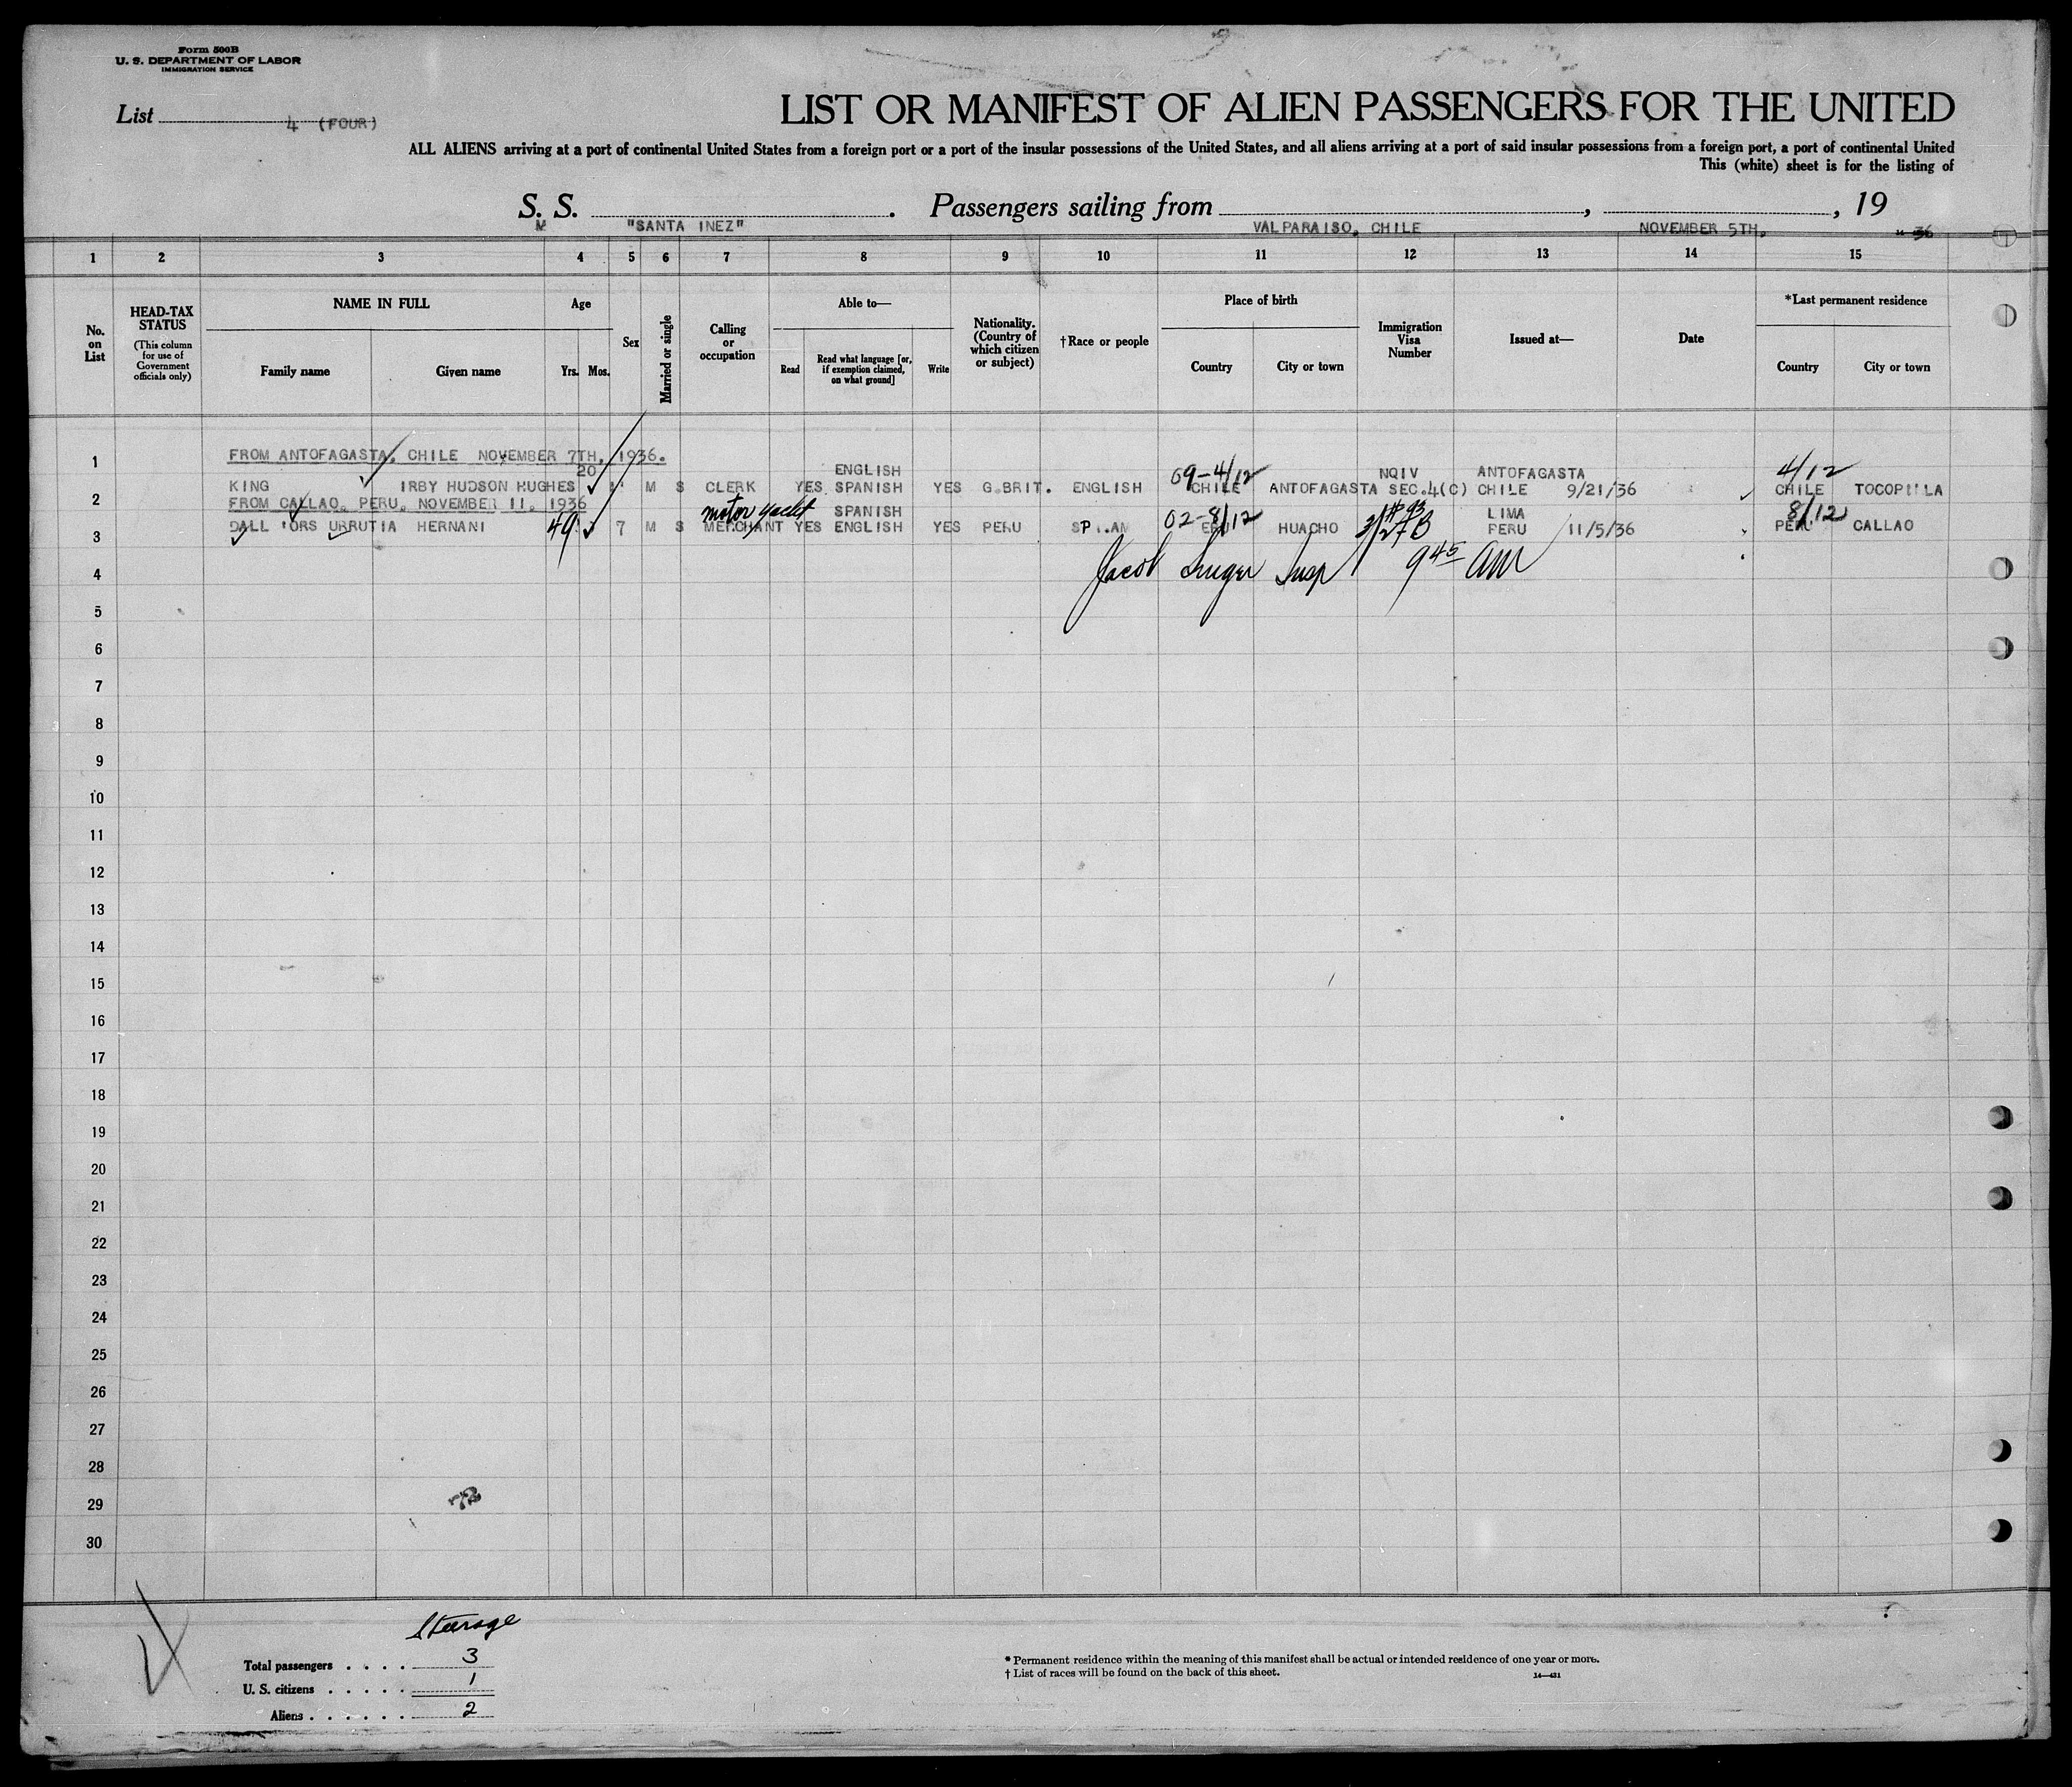 Form 500B
U. S. DEPARTMENT OF LABOR
IMMIGRATION SERVICE
List 4 (FOUR)
LIST OR MANIFEST OF ALIEN PASSENGERS FOR THE UNITED
ALL ALIENS arriving at a port of continental United States from a foreign port or a port of the insular possessions of the United States, and all aliens arriving at a port of said insular possessions from a foreign port, a port of continental United
This (white) sheet is for the listing of
S. S. . Passengers sailing from , , 19
M "SANTA INEZ" VALPARAISO, CHILE NOVEMBER 5TH, 36
1 2 3 4 5 6 7 8 9 10 11 12 13 14 15
No. on List
HEAD-TAX STATUS
(This column for use of Government officials only)
NAME IN FULL
Family name Given name
Age
Yrs. Mos.
Sex
Married or single
Calling or occupation
Able to—
Read
Read what language [or, if exemption claimed, on what ground]
Write
Nationality. (Country of which citizen or subject)
†Race or people
Place of birth
Country City or town
Immigration Visa Number
Issued at—
Date
*Last permanent residence
Country City or town
1 FROM ANTOFAGASTA, CHILE NOVEMBER 7TH, 1936.
20 ENGLISH 09-4/12 NQIV ANTOFAGASTA 4/12
KING IRBY HUDSON HUGHES M S CLERK YES SPANISH YES G.BRIT. ENGLISH CHILE ANTOFAGASTA SEC.4(C) CHILE 9/21/36 CHILE TOCOPILLA
2 FROM CALLAO, PERU, NOVEMBER 11, 1936
motor yacht SPANISH 02-8/12 #93 LIMA 8/12
DALL 'ORS URRUTIA HERNANI 49 7 M S MERCHANT YES ENGLISH YES PERU HUACHO PERU 11/5/36 PERU CALLAO
3
Jacob Insp 9 45 AM
4
5
6
7
8
9
10
11
12
13
14
15
16
17
18
19
20
21
22
23
24
25
26
27
28
29
30
Steerage
Total passengers . . . . 3
U. S. citizens . . . . . 1
Aliens . . . . . . 2
* Permanent residence within the meaning of this manifest shall be actual or intended residence of one year or more.
† List of races will be found on the back of this sheet.
14—431